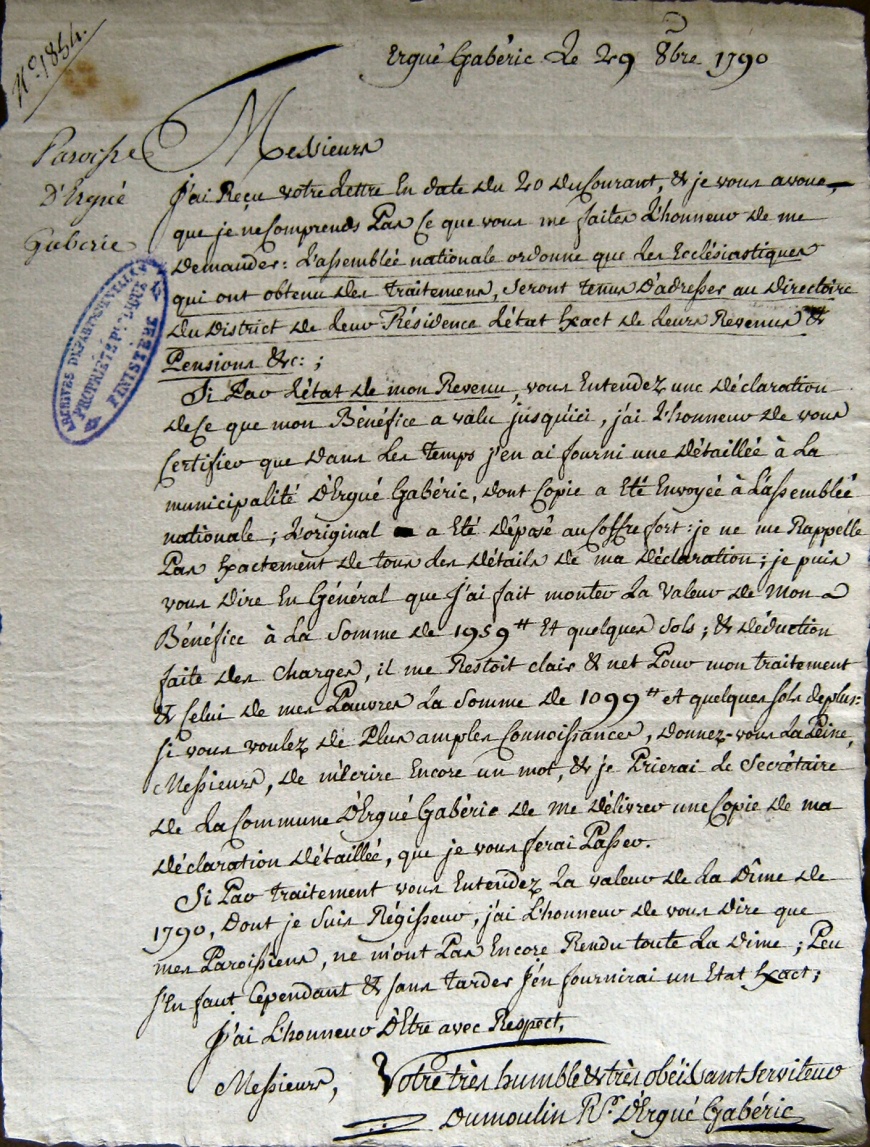 N.º 1854.
Ergué Gabéric Le 29 8bre 1790
Paroisse
D'Ergué
Gaberic
Messieurs
J'ai Reçu votre Lettre En date du 20 du Courant, & je vous avoue,
que je ne Comprends Pas Ce que vous me faites L'honneur de me
Demander: L'assemblée nationale ordonne que Les Ecclésiastiques
qui ont obtenu des traitemens, seront tenus D'adresser au directoire
du District de Leur Résidence L'état Exact de Leurs Revenus &
Pensions &c: ;
ARCHIVES DEPARTEMENTALES
PROPRIÉTÉ PUBLIQUE
FINISTÈRE
Si Par L'état de mon Revenu, vous Entendez une déclaration
de Ce que mon Bénéfice a valu jusqu'ici, j'ai L'honneur de vous
Certifier que dans Les temps j'en ai fourni une détaillée à La
municipalité D'Ergué Gabéric, dont Copie a Eté Envoyée à L'assemblée
nationale; L'original a Eté déposé au Coffre fort: je ne me Rappelle
Pas Exactement de tous Les détails de ma déclaration; je puis
vous dire En Général que J'ai fait monter La Valeur de Mon
Bénéfice à La Somme de 1959ᵗᵗ Et quelques sols; & déduction
faite des Charges, il me Restoit clair & net Pour mon traitement
& Celui de mes Pauvres La Somme de 1099ᵗᵗ et quelques sols de plus:
Si vous voulez de Plus amples Connoissances, donnez-vous La Peine,
Messieurs, de m'écrire Encore un mot, & je Prierai Le Secrétaire
de La Commune D'Ergué Gabéric de me délivrer une Copie de ma
déclaration détaillée, que je vous ferai Passer.
Si Par traitement vous Entendez La valeur de La Dîme de
1790, Dont je Suis Régisseur, j'ai L'honneur de vous Dire que
mes Paroissiens, ne m'ont Pas Encore Rendu toute La Dime; Peu
s'En faut Cependant & sans tarder J'en fournirai un Etat Exact;
J'ai L'honneur D'Etre avec Respect,
Messieurs, Votre très humble & très obéissant serviteur
Dumoulin Rr. D'Ergué Gabéric